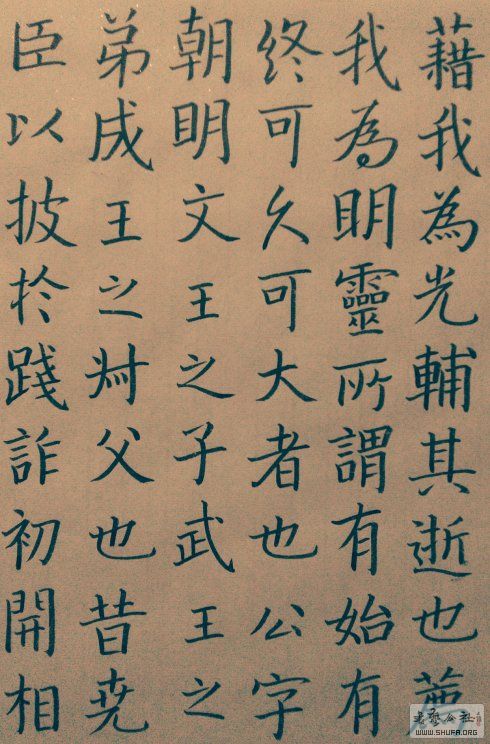 藉我為光輔其逝也薦
我為眀靈所謂有始有
終可久可大者也公字
朝眀文王之子武王之
弟成王之叔父也昔尭
臣以披扵踐詐初開相
WWW.SHUFA.ORG